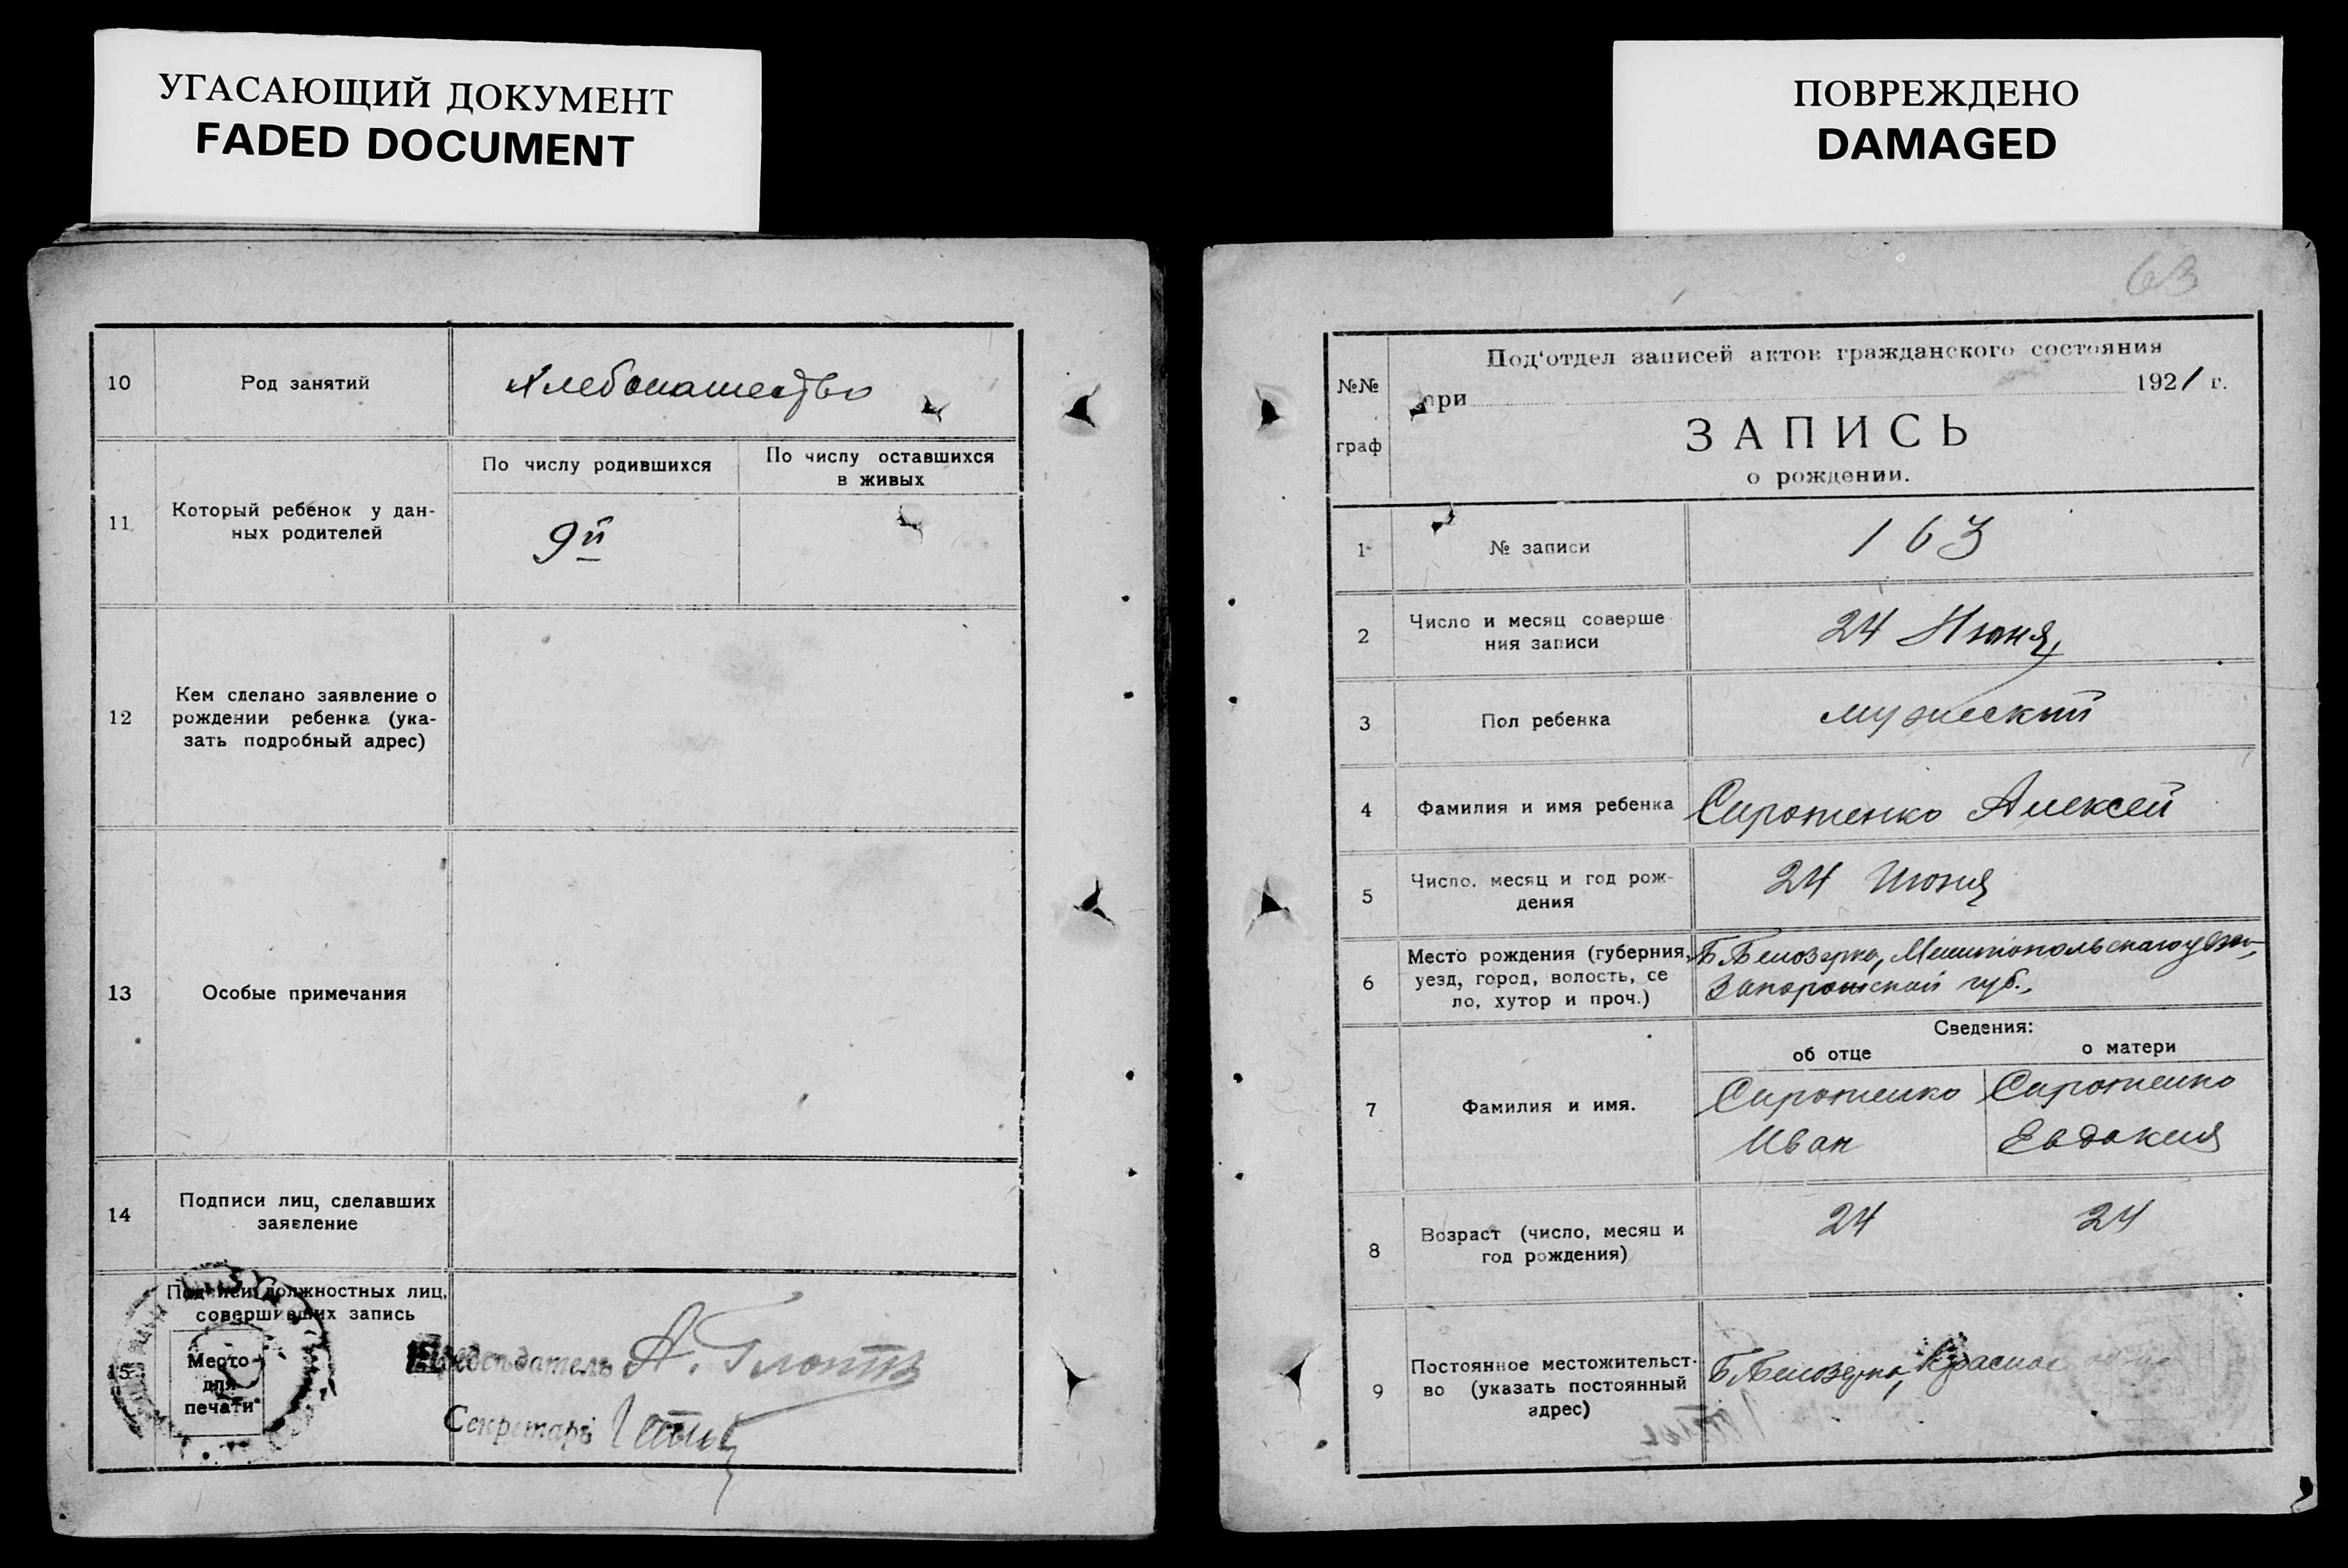 УГАСАЮЩИЙ ДОКУМЕНТ
FADED DOCUMENT
10
Род занятий
Хлебопашество
11
Который ребенок у дан-
ных родителей
По числу родившихся
По числу оставшихся
в живых
9й
12
Кем сделано заявление о
рождении ребенка (ука-
зать подробный адрес)
13
Особые примечания
14
Подписи лиц, сделавших
заявление
15
Подписи должностных лиц,
совершивших запись
Место
для
печати
Председатель А.
Секретарь
ПОВРЕЖДЕНО
DAMAGED
63
№№
граф
Под‘отдел записей актов гражданского состояния
при 1921 г.
ЗАПИСЬ
о рождении.
1
№ записи
163
2
Число и месяц соверше
ния записи
24 Июня
3
Пол ребенка
мужеский
4
Фамилия и имя ребенка
Сиротенко Алексей
5
Число. месяц и год рож-
дения
24 Июня
6
Место рождения (губерния,
уезд, город, волость, се
ло, хутор и проч.)
Б. Белозерка, Мелитопольскаго уезда,
Запорожской губ.,
Сведения:
об отце
о матери
7
Фамилия и имя.
Сиротенко
Иван
Сиротенко
Евдокия
8
Возраст (число, месяц и
год рождения)
24
24
9
Постоянное местожительст-
во (указать постоянный
адрес)
Б. Белозерка,